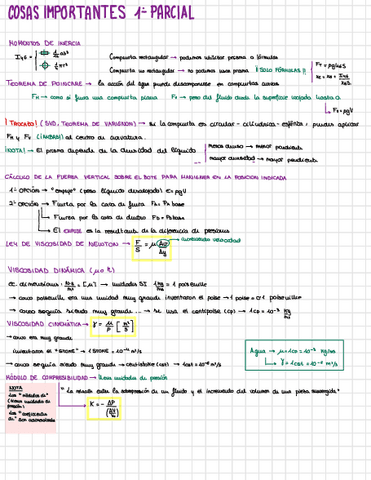 COSAS IMPORTANTES 1er PARCIAL
MOMENTOS DE INERCIA
Compuerta rectangular → podemos utilizar prisma o fórmulas
Compuerta no rectangular → no podemos usar prisma ¡¡SOLO FÓRMULAS!!
TEOREMA DE POINCARE → la acción del agua puede descomponerse en compuertas curvas
FH → como si fuera una compuerta plana FV → peso del fluido desde la superficie mojada hasta a
¡TRUCAZO! (SVD, TEOREMA DE VARIGNON) → si la compuerta es circular - cilíndrica - esférica, puedes aplicar
FH y FV (AMBAS) al centro de curvatura.
¡NOTA! → El prisma depende de la densidad del líquido
menos denso → menor pendiente
mayor densidad → mayor pendiente
CÁLCULO DE LA FUERZA VERTICAL SOBRE EL BOTE PARA MANTENER EN LA POSICION INDICADA
1ª OPCIÓN → "empuje" (peso líquido desalojado) E = ρgV
2ª OPCIÓN → Fuerza por la cara de fuera
Fuerza por la cara de dentro
El EMPUJE es la resultante de la diferencia de presiones
LEY DE VISCOSIDAD DE NEWTON → F/S = μ Δv/Δy → incremento velocidad
VISCOSIDAD DINÁMICA
ec. dimensiones → unidades SI → 1 poiseuille
→ como poiseuille era una unidad muy grande inventaron el poise → 1 poise = 0'1 poiseuille
→ como seguía siendo muy grande ... → se usa el centipoise (cp) → 1cp = 10⁻³ kg/ms
VISCOSIDAD CINEMÁTICA → γ = μ/ρ [m²/s]
→ como era muy grande
inventaron el "STOKE" → 1 STOKE = 10⁻⁴ m²/s
→ como seguía siendo muy grande → centistoke (cst) → 1cst = 10⁻⁶ m²/s
Agua → μ = 1cp = 10⁻³ kg/ms
γ = 1cst = 10⁻⁶ m²/s
MÓDULO DE COMPRESIBILIDAD → lleva unidades de presión
NOTA
los "módulos de"
(llevan unidades de presión)
los "coeficientes de" son adimensionales
"La relación entre la compresión de un fluido y el incremento del volumen de una pieza sumergida"
K = - ΔP/(ΔV/V₀)